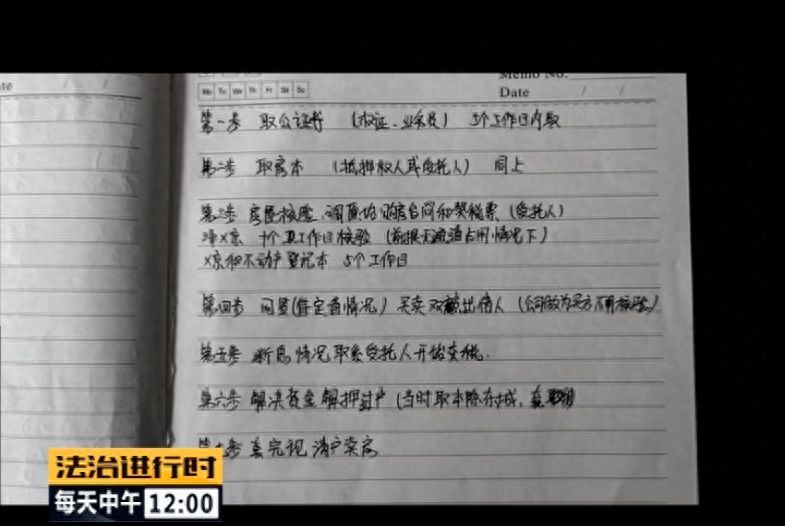 Date / /
Memo No.
Mo Tu We Th Fr Sa Su
Date / /
第一步 取公证书 (权证、业务员) 5个工作日内取
第二步 取房本 (抵押权人或受托人) 同上
第三步 房屋核验 调原始购房合同和契税票 (受托人)
十个工作日核验 (前提无疏通占用情况下)
X京和不动产登记本 5个工作日
第四步 网签(待定看情况) 买卖双 出借人 (公司做为买方 核验)
第五步 断息情况 联系受托人开始交税.
第六步 解决资金解押过户 (当时取本 存城,
第七步 套完现 清户卖房
法治进行时
每天中午 12:00